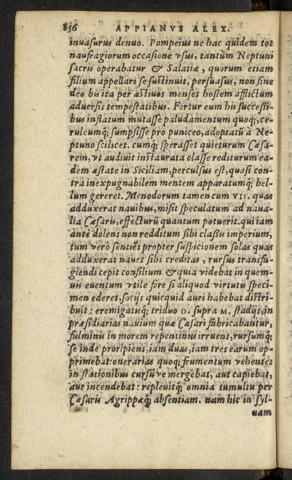 856 APPIANVS ALEX.
inuasurus denuo. Pompeius ne hac quidem tot
naufragiorum occasione vsus, tantùm Neptuni
sacris operabatur & Salatiæ, quorum etiam
filium appellari se sustinuit, persuasus, non sine
deo bis ita per æstiuos menses hostem afflictum
aduersis tempestatibus. Fertur eum his successi-
bus inflatum mutasse paludamentum quoq;, ce-
ruleumq; sumpsisse pro puniceo, adoptatū à Ne-
ptuno scilicet. cumq; sperasset quieturum Cæsa-
rem, vt audiuit instaurata classe rediturum ea-
dem æstate in Siciliam, perculsus est, quasi con-
tra inexpugnabilem mentem apparatumq; bel-
lum gereret. Menodorum tamen cum VII. quas
adduxerat nauibus, misit speculatum ad naua-
lia Cæsaris, effecturū quantum poterit. qui iam
antè dolens non redditum sibi classis imperium,
tum verò sentiēs propter suspicionem solas quas
adduxerat naues sibi creditas, rursus transfu-
giendi cepit consilium & quia videbat in quem-
uis euentum vtile fore si aliquod virtutis speci-
men ederet, socijs quicquid auri habebat distri-
buit: eremigatūq; triduo D. supra M. stadijs, in
præsidiarias nauium quæ Cæsari fabricabantur,
fulminis in morem repentinus irruens, rursumq;
se inde proripiens, iam duas, iam tres earum op-
primebat: onerarias quoq; frumentum vehentes
in stationibus cursúve mergebat, aut capiebat,
aut incendebat: repleuitq; omnia tumultu per
Cæsaris Agrippæq; absentiam. nam hic in syl-
uam